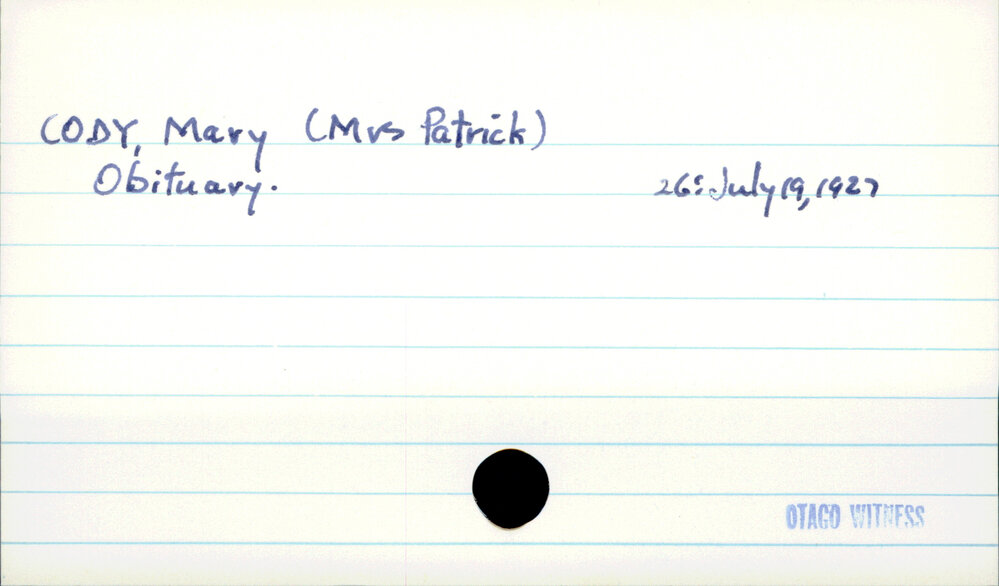 CODY, Mary (Mrs Patrick)
Obituary. 26: July 19, 1927
OTAGO WITNESS